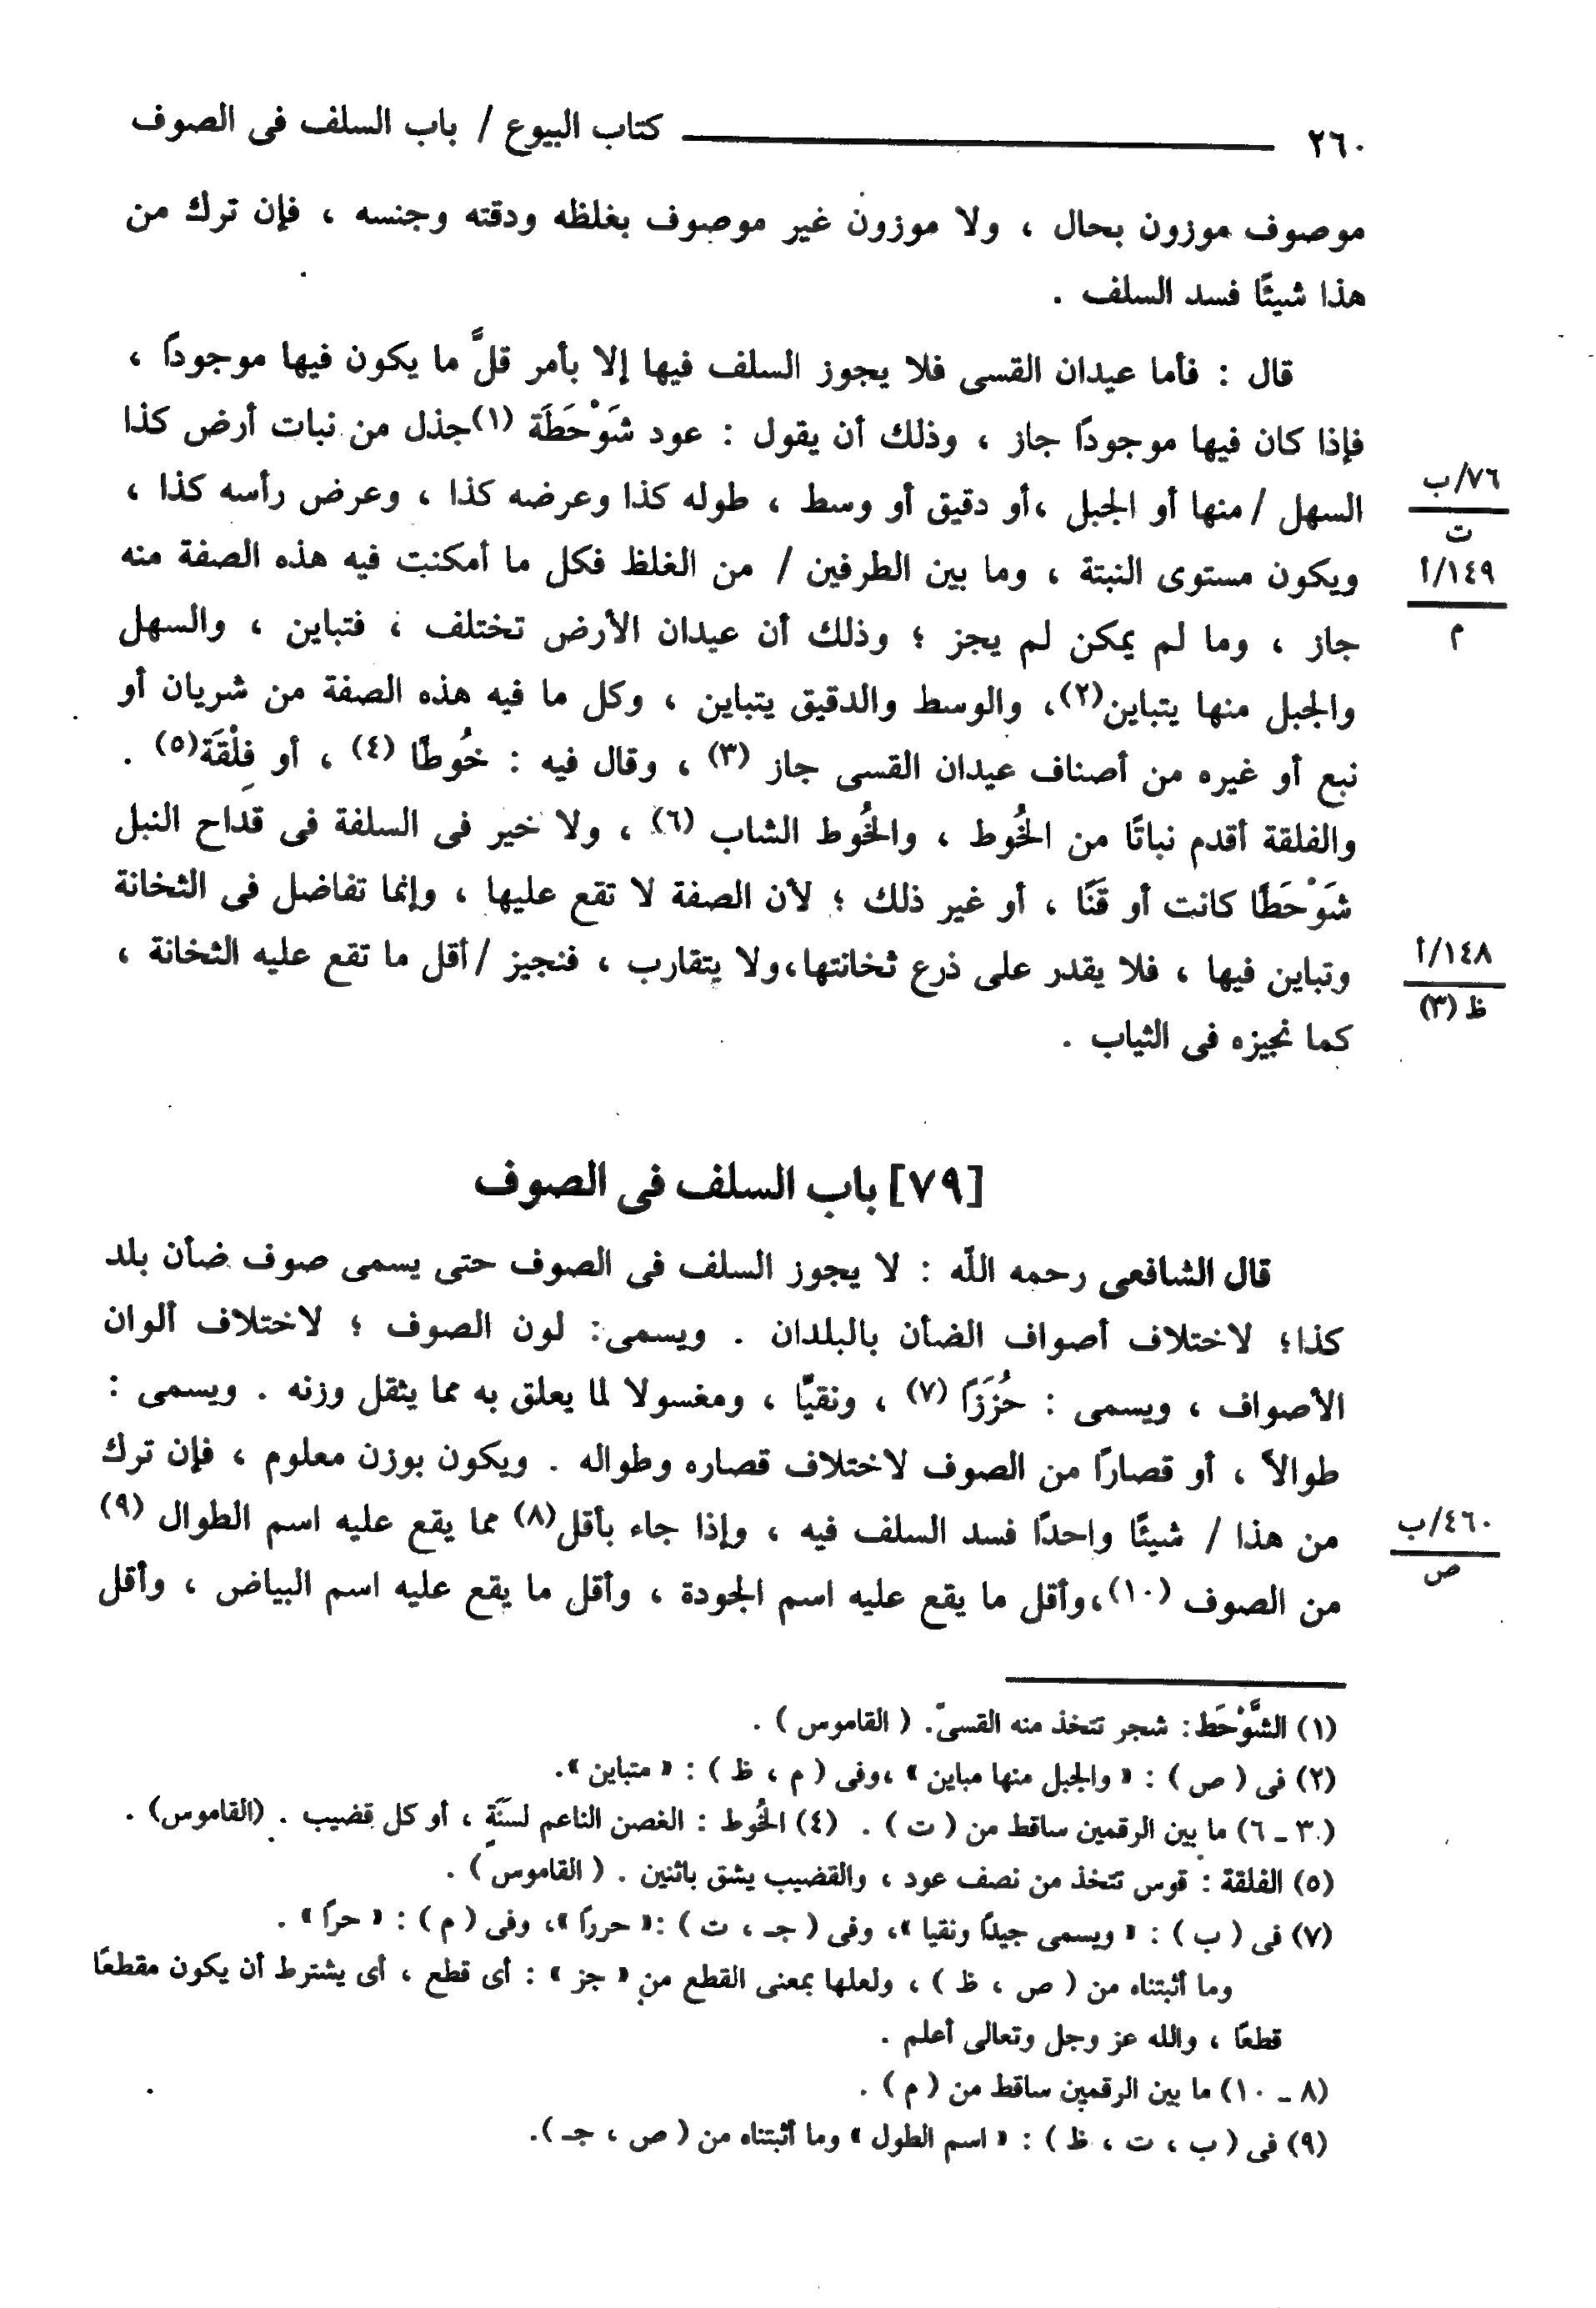 ٢٦٠ كتاب البيوع / باب السلف فى الصوف
موصوف موزون بحال ، ولا موزون غير موصوف بغلظه ودقته وجنسه ، فإن ترك من
هذا شيئًا فسد السلف .
قال : فأما عيدان القسى فلا يجوز السلف فيها إلا بأمر قلَّ ما يكون فيها موجودًا ،
فإذا كان فيها موجودًا جاز ، وذلك أن يقول : عود شَوْحَطَة (١)جذل من نبات أرض كذا
السهل /منها أو الجبل ،أو دقيق أو وسط ، طوله كذا وعرضه كذا ، وعرض رأسه كذا ،
٧٦/ب
ت
ويكون مستوى النبتة ، وما بين الطرفين / من الغلظ فكل ما أمكنت فيه هذه الصفة منه
١٤٩/أ
م
جاز ، وما لم يمكن لم يجز ؛ وذلك أن عيدان الأرض تختلف ، فتباين ، والسهل
والجبل منها يتباين(٢)، والوسط والدقيق يتباين ، وكل ما فيه هذه الصفة من شريان أو
نبع أو غيره من أصناف عيدان القسى جاز (٣) ، وقال فيه : خُوطًا (٤) ، أو فِلْقَة(٥) .
والفلقة أقدم نباتًا من الخُوط ، والخُوط الشاب (٦) ، ولا خير فى السلفة فى قداح النبل
شَوْحَطًا كانت أو قَنًا ، أو غير ذلك ؛ لأن الصفة لا تقع عليها ، وإنما تفاضل فى الثخانة
وتباين فيها ، فلا يقدر على ذرع ثخانتها،ولا يتقارب ، فنجيز /أقل ما تقع عليه الثخانة ،
١٤٨/أ
ظ (٣)
كما نجيزه فى الثياب .
[٧٩] باب السلف فى الصوف
قال الشافعى رحمه اللّه : لا يجوز السلف فى الصوف حتى يسمى صوف ضأن بلد
كذا؛ لاختلاف أصواف الضأن بالبلدان . ويسمى: لون الصوف ؛ لاختلاف ألوان
الأصواف ، ويسمى : حُزَزًا (٧) ، ونقيًّا ، ومغسولا لما يعلق به مما يثقل وزنه . ويسمى :
طوالاً ، أو قصارًا من الصوف لاختلاف قصاره وطواله . ويكون بوزن معلوم ، فإن ترك
من هذا / شيئًا واحدًا فسد السلف فيه ، وإذا جاء بأقل(٨) مما يقع عليه اسم الطوال (٩)
٤٦٠/ب
ص
من الصوف (١٠)،وأقل ما يقع عليه اسم الجودة ، وأقل ما يقع عليه اسم البياض ، وأقل
(١) الشَّوْحَط: شجر تتخذ منه القسىّ. ( القاموس ) .
(٢) فى ( ص ) : « والجبل منها مباين » ،وفى ( م ، ظ ) : « متباين ».
(٣ ـ ٦) ما بين الرقمين ساقط من ( ت ) . (٤) الخُوط : الغصن الناعم لسَنَةٍ ، أو كل قضيب . (القاموس) .
(٥) الفلقة : قوس تتخذ من نصف عود ، والقضيب يشق باثنين . ( القاموس ) .
(٧) فى ( ب ) : « ويسمى جيدًا ونقيا »، وفى ( جـ ، ت ) :« حررًا »، وفى ( م ) : « حرًا » .
وما أثبتناه من ( ص ، ظ ) ، ولعلها بمعنى القطع من « جز » : أى قطع ، أى يشترط أن يكون مقطعًا
قطعًا ، والله عز وجل وتعالى أعلم .
(٨ ـ ١٠) ما بين الرقمين ساقط من ( م ) .
(٩) فى ( ب ، ت ، ظ ) : « اسم الطول » وما أثبتناه من ( ص ، جـ ).